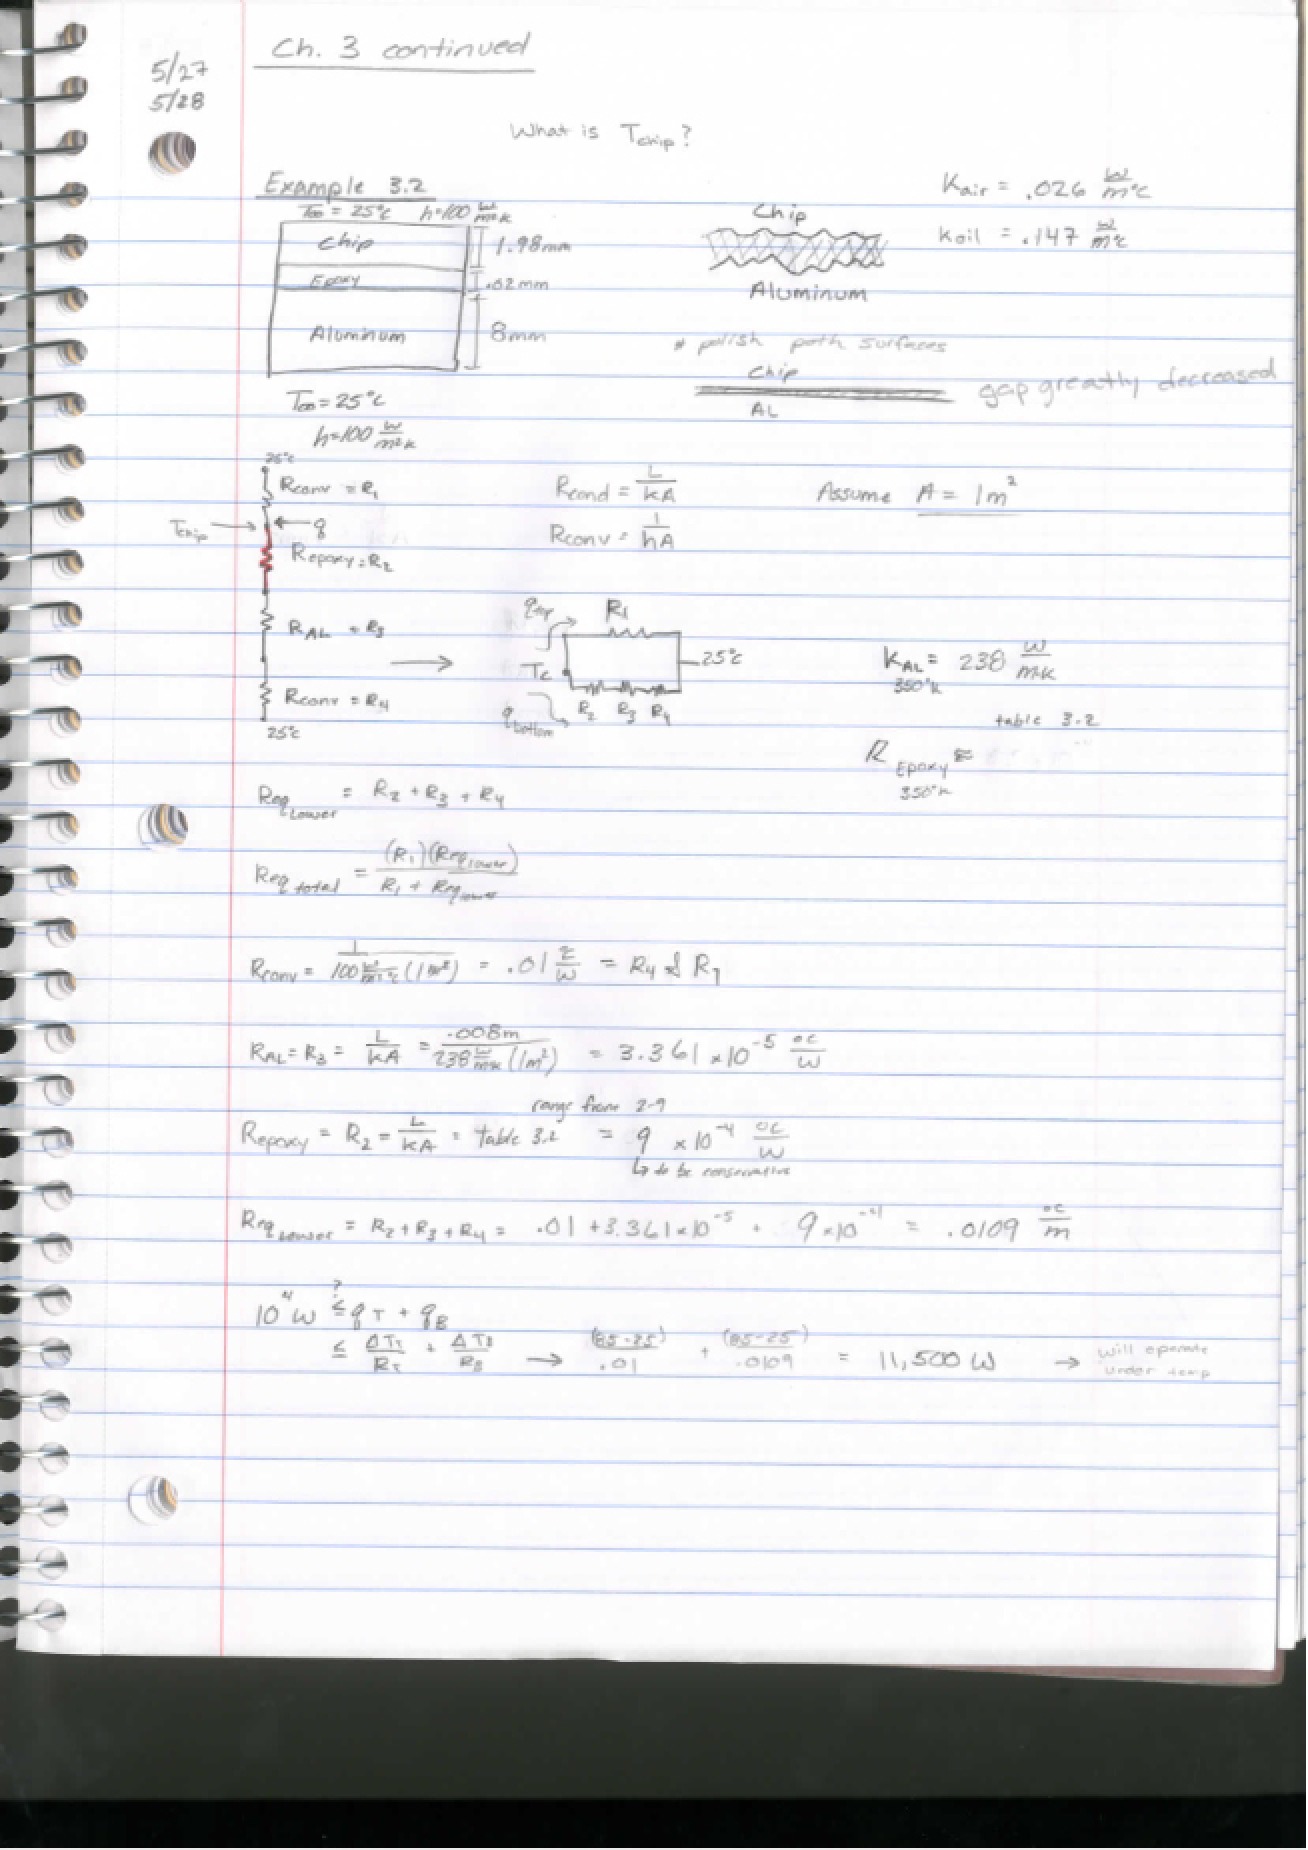 Ch. 3 continued
5/27
5/28
What is Tchip?
Example 3.2
T∞ = 25°C h=100 W/m²K
Chip
1.98mm
Epoxy
.02mm
Aluminum
8mm
T∞ = 25°C
h=100 W/m²K
Kair = .026 W/m°C
Koil = .147 W/m°C
Chip
Aluminum
* polish both surfaces
Chip
AL
gap greatly decreased
25°C
Rconv = R1
Tchip → ← q
Repoxy = R2
RAL = R3
Rconv = R4
25°C
Rcond = L/kA
Rconv = 1/hA
Assume A = 1m²
qtop
R1
Tc
25°C
R2 R3 R4
qbottom
KAL = 238 W/mK
350°K
table 3.2
R Epoxy =
350°K
Req Lower = R2 + R3 + R4
Req total = (R1)(Req lower) / R1 + Req lower
Rconv = 1 / 100 W/m²°C (1m²) = .01 °C/W = R4 & R1
RAL = R3 = L/kA = .008m / 238 W/mK (1m²) = 3.361 x10⁻⁵ °C/W
range from 2-9
Repoxy = R2 = L/kA = table 3.2 = 9 x10⁻⁴ °C/W
↳ to be conservative
Req Lower = R2 + R3 + R4 = .01 + 3.361x10⁻⁵ + 9x10⁻⁴ = .0109 °C/m
10⁴ W ≤? qT + qB
≤ ΔTT/RT + ΔTB/RB → (85-25)/.01 + (85-25)/.0109 = 11,500 W → will operate
under temp